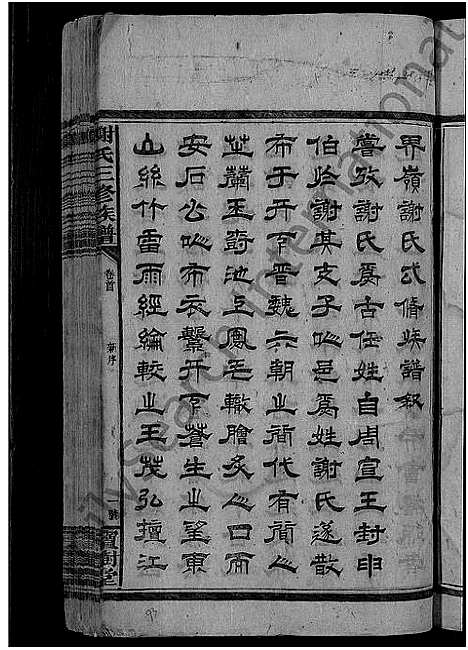 界嶺謝氏弍脩族譜叙
嘗攷謝氏爲古任姓自周宣王封申
伯於謝其支子以邑爲姓謝氏遂散
布于天下晋魏六朝之間代有聞人
芝蘭玉 池上鳳毛轍膾炙人口而
安石公以布衣繫天下蒼生之望東
山絲竹雷雨經綸較之王茂弘擅江
謝氏三修族譜
卷首
寶樹堂